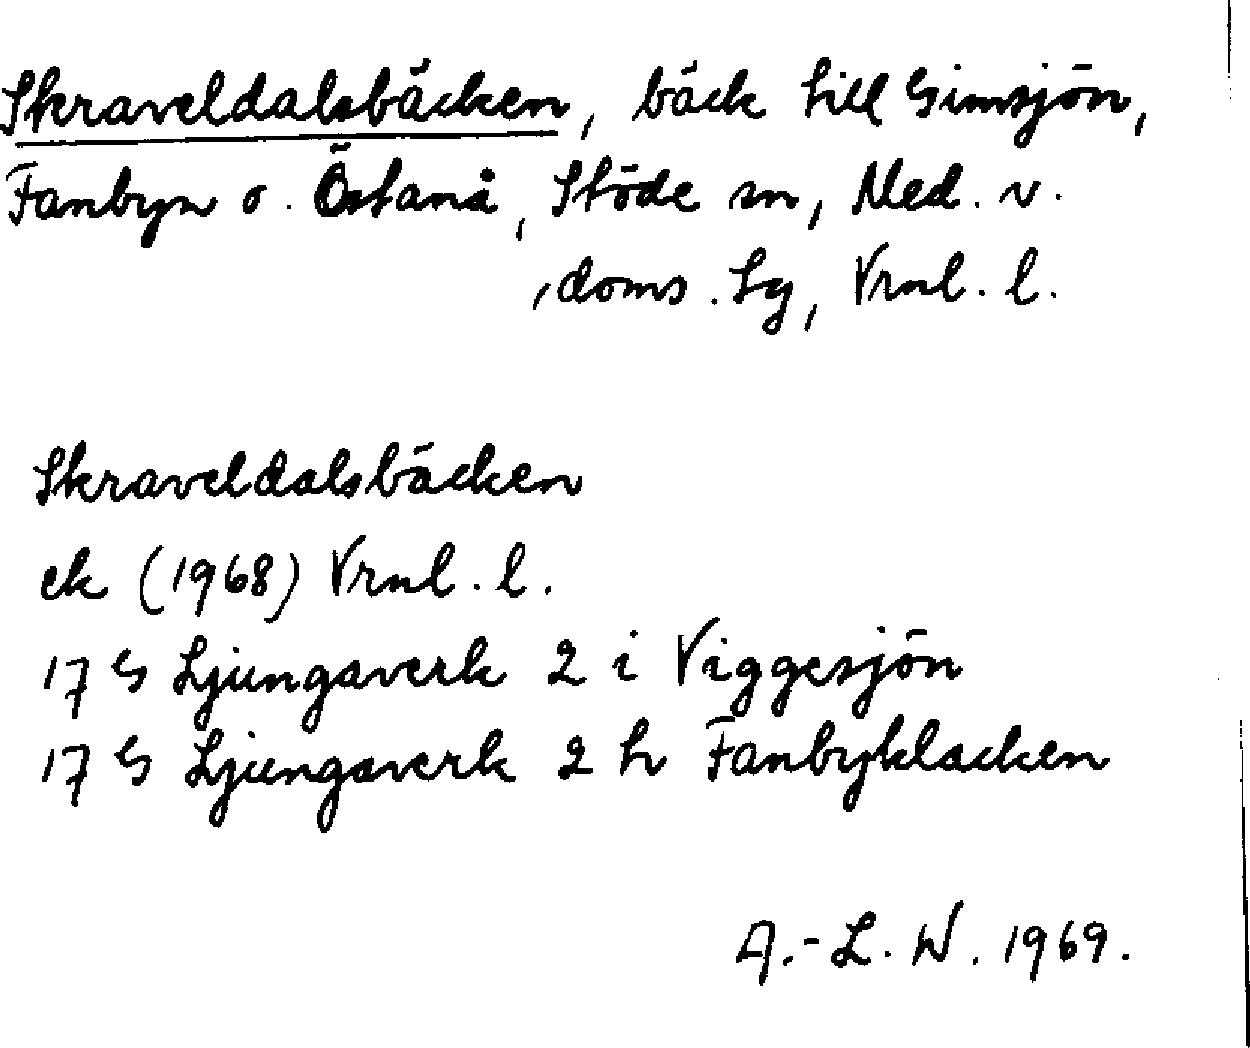 Skraveldalsbäcken, bäck till Gimsjön,
Fanbyn o. Östanå, Stöde sn, Med. v.
, doms. Lg, Vrnl. l.
Skraveldalsbäcken
ek (1968) Vrnl. l.
17 G Ljungaverk 2 i Viggesjön
17 G Ljungaverk 2 h Fanbyklacken
A.-L. W. 1969.